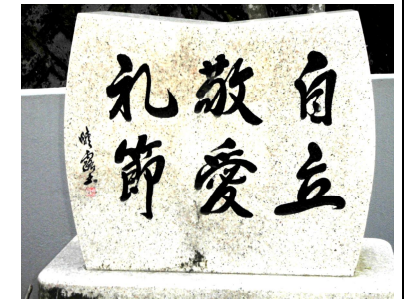 自立
敬愛
礼節